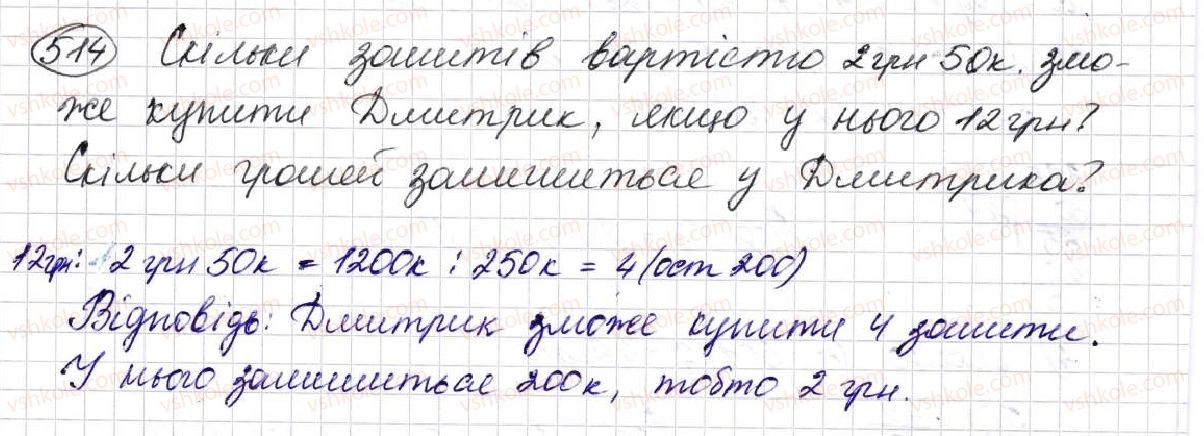 514 Скільки зошитів вартістю 2 грн 50 к. змо-
же купити Дмитрик, якщо у нього 12 грн?
Скільки грошей залишиться у Дмитрика?
12 грн : 2 грн 50 к = 1200 к : 250 к = 4 (ост 200)
Відповідь: Дмитрик зможе купити 4 зошити.
У нього залишиться 200 к, тобто 2 грн.